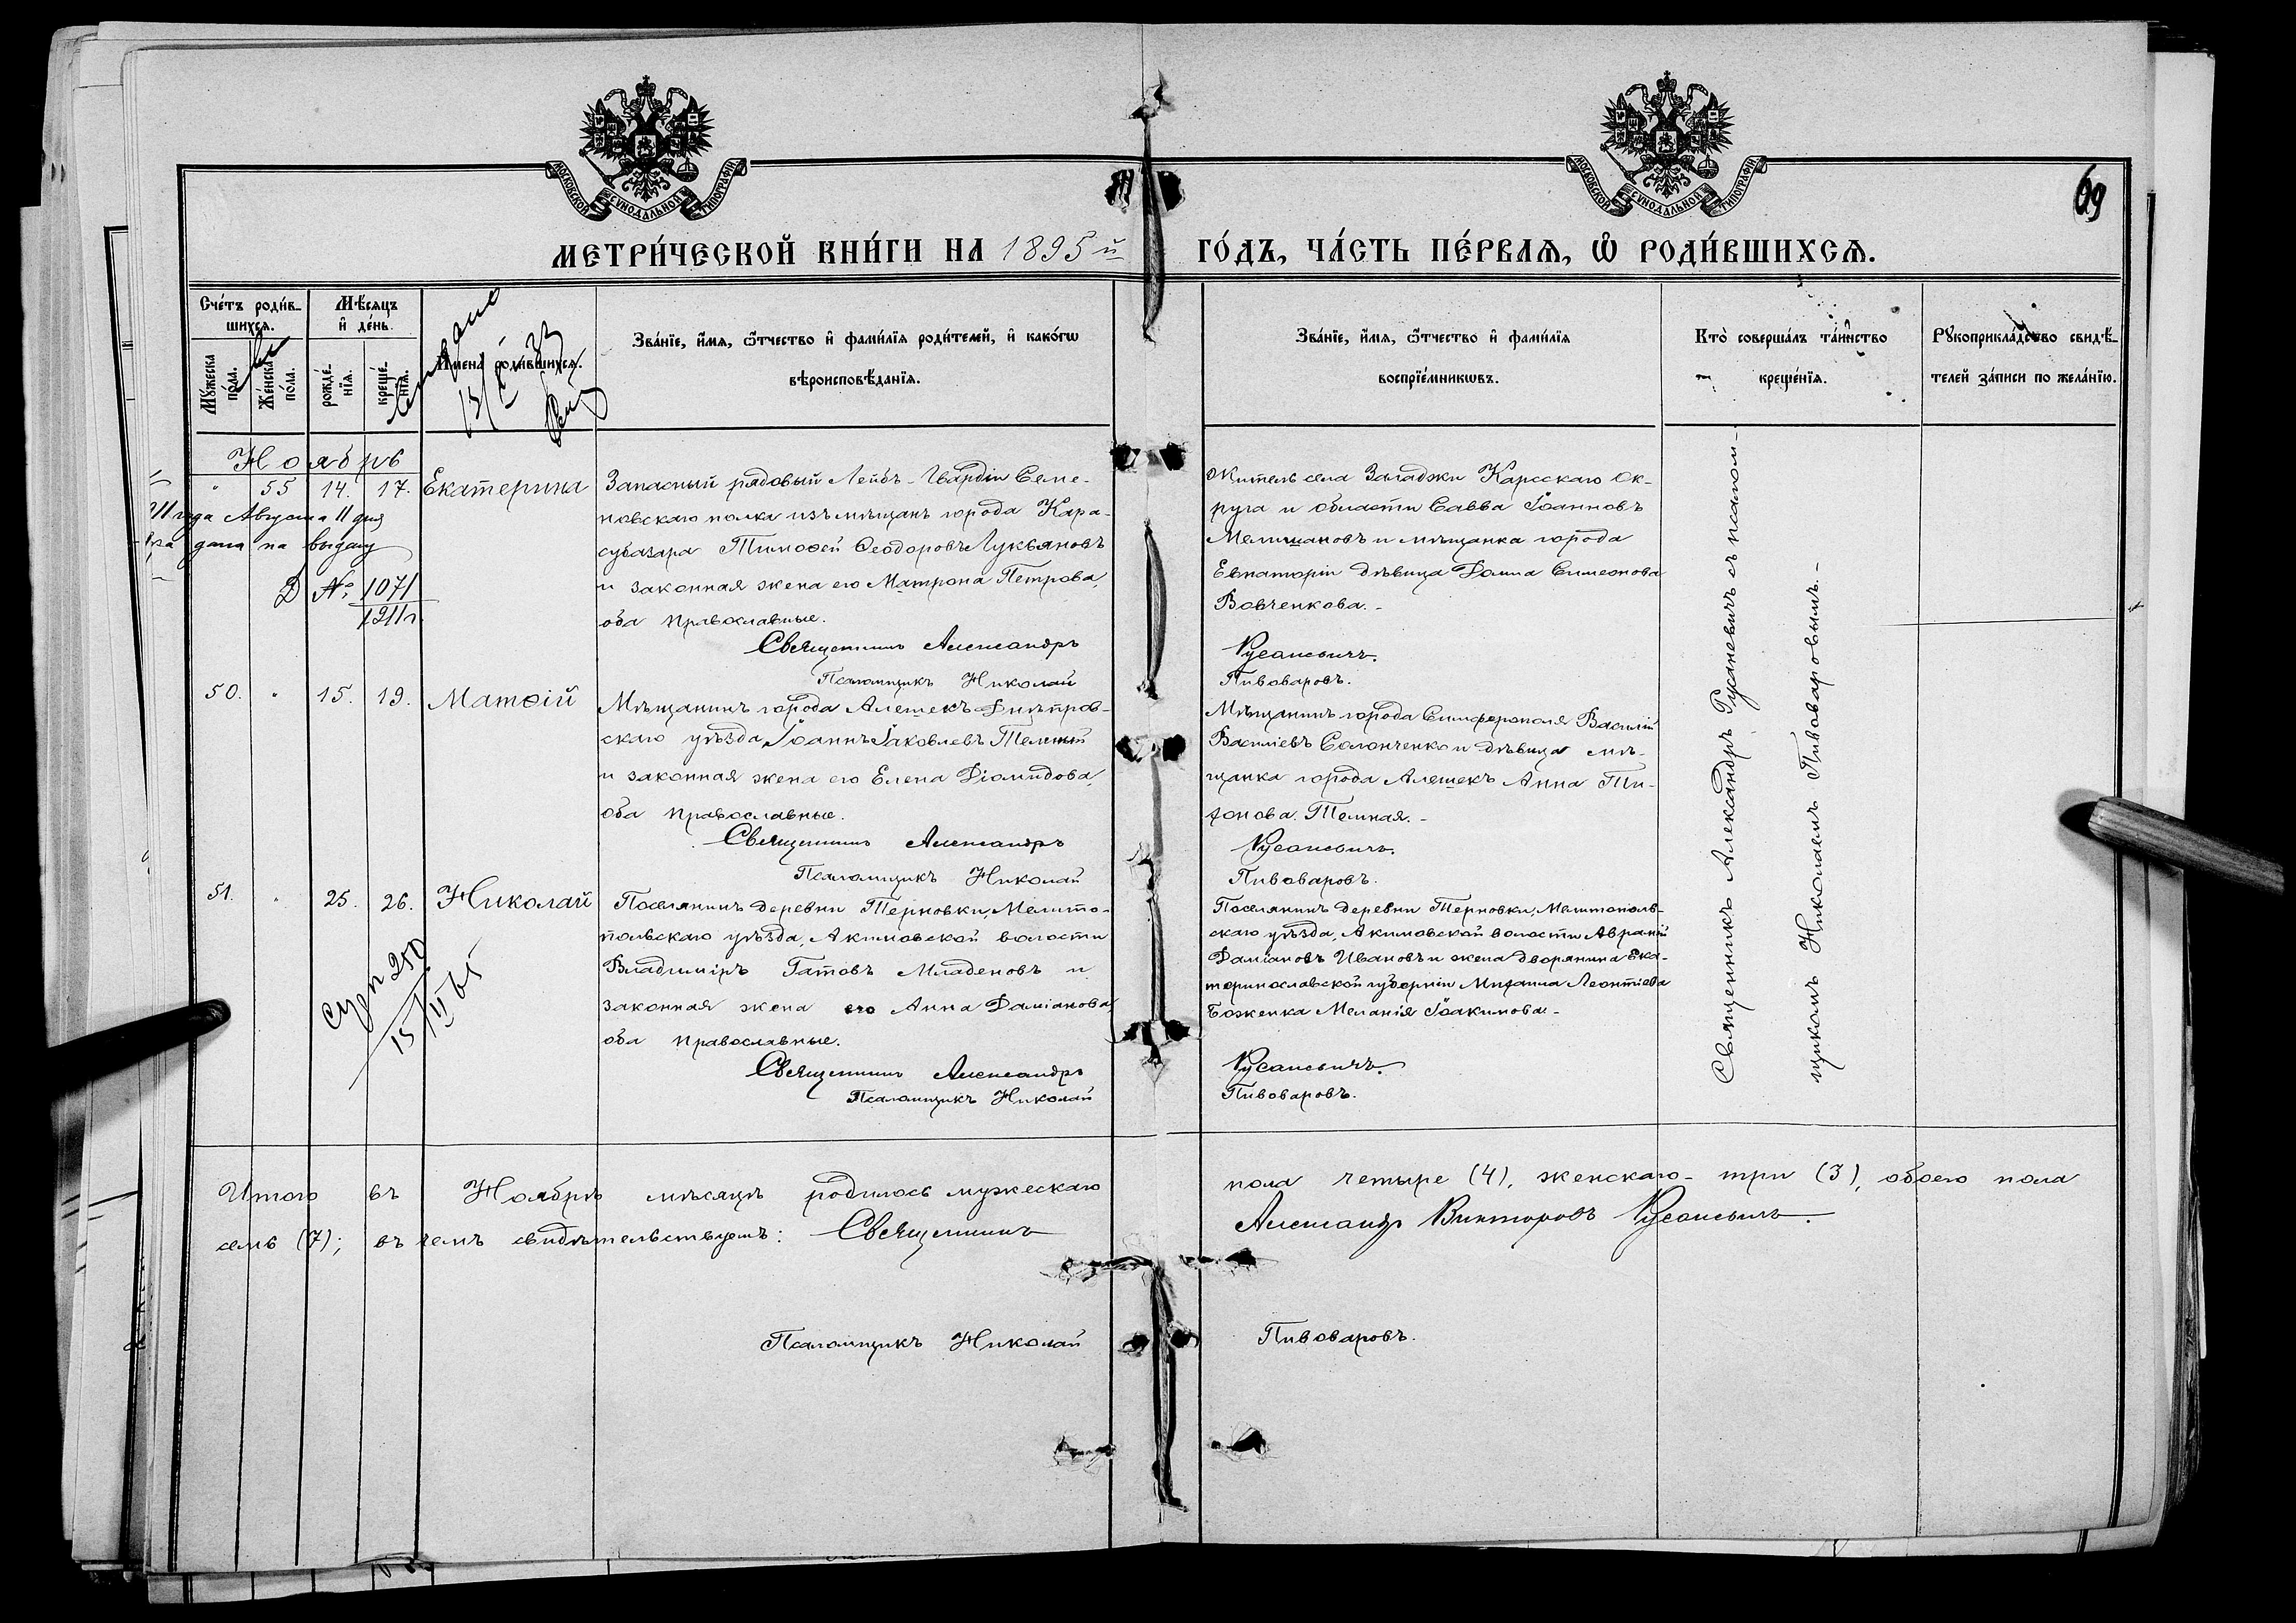 МОСКОВСКОЙ СѴНОДАЛЬНОЙ ТИПОГРАФІИ
МОСКОВСКОЙ СѴНОДАЛЬНОЙ ТИПОГРАФІИ
69
МЕТРИ́ЧЕСКОЙ КНИ́ГИ НА 1895й ГО́ДЪ, ЧА́СТЬ ПЕ́РВАЯ, Ѡ РОДИ́ВШИХСЯ.
Сче́тъ роди́в-
шихся.
Мѣ́сяцъ
и҆ де́нь.
Мꙋжеска
по́ла.
Же́нска
по́ла.
рожде́-
нїѧ.
креще́-
нїѧ.
И҆мена̀ роди́вшихсѧ.
Зва́нїе, и҆́мѧ, ѻ҆́тчество и҆ фами́лїѧ роди́телей, и҆ како́гѡ
вѣроисповѣ́данїѧ.
Зва́нїе, и҆́мѧ, ѻ҆́тчество и҆ фами́лїѧ
воспрїе́мникѡвъ.
Кто̀ соверша́лъ та́инство
креще́нїѧ.
Рꙋкоприкла́дство свидѣ́-
телей за́писи по жела́нїю.
Ноябрь
" 55 14. 17. Екатерина
Запасный рядовый Лейбъ-Гвардіи Семе-
новскаго полка изъ мѣщанъ города Кара-
субазара Тимоѳей Ѳеодоровъ Лукьяновъ
и законная жена его Матрона Петрова,
оба православные.
Священникъ Александръ
Псаломщикъ Николай
года Августа 11 дня
дана на выдачу
Д №: 1071
1911 г.
Житель села Загаджи Карсскаго Ок-
руга и области Савва Іоанновъ
Мелишановъ и мѣщанка города
Евпаторіи дѣвица Домна Симеонова
Вовченкова.-
Русаневичъ.
Пивоваровъ.
50. " 15. 19. Матѳій
Мѣщанинъ города Алешекъ Днѣпров-
скаго уѣзда Іоаннъ Іаковлевъ Темный
и законная жена его Елена Діомидова,
оба православные.
Священникъ Александръ
Псаломщикъ Николай
Мѣщанинъ города Симферополя Василій
Василіевъ Солонченко и дѣвица мѣ-
щанка города Алешекъ Анна Ти-
хонова Темная.-
Русаневичъ.
Пивоваровъ.
51. " 25. 26. Николай
Поселянинъ деревни Терновки, Мелито-
польскаго уѣзда, Акимовской волости
Владиміръ Гатовъ Младеновъ и
законная жена его Анна Даміанова,
оба православные.
Священникъ Александръ
Псаломщикъ Николай
15/II 65
Поселянинъ деревни Терновки, Мелитополь-
скаго уѣзда, Акимовской волости Аврамій
Даміановъ Ивановъ и жена дворянина Ека-
теринославской губерніи Михаила Леонтіева
Боженка Меланія Іоакимова.-
Русаневичъ.
Пивоваровъ.
Священникъ Александръ Русаневичъ съ псалом-
щикомъ Николаемъ Пивоваровымъ.-
Итого въ Ноябрѣ мѣсяцѣ родилось мужескаго пола четыре (4), женскаго-три (3), обоего пола
семь (7); въ чемъ свидѣтельствуемъ: Священникъ Александръ Викторовъ Русаневичъ.
Псаломщикъ Николай Пивоваровъ.